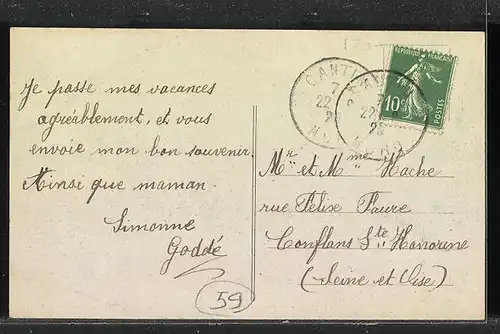 Je passe mes vacances
agréablement, et vous
envoie mon bon souvenir.
Ainsi que maman.
Simonne
Goddé
59
RÉPUBLIQUE FRANÇAISE
10c
POSTES
7
22
Mr et Mme Hache
rue Félix Faure
Conflans Ste Honorine
(Seine et Oise)